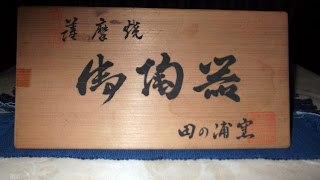 薩摩焼
御陶器
田の浦窯